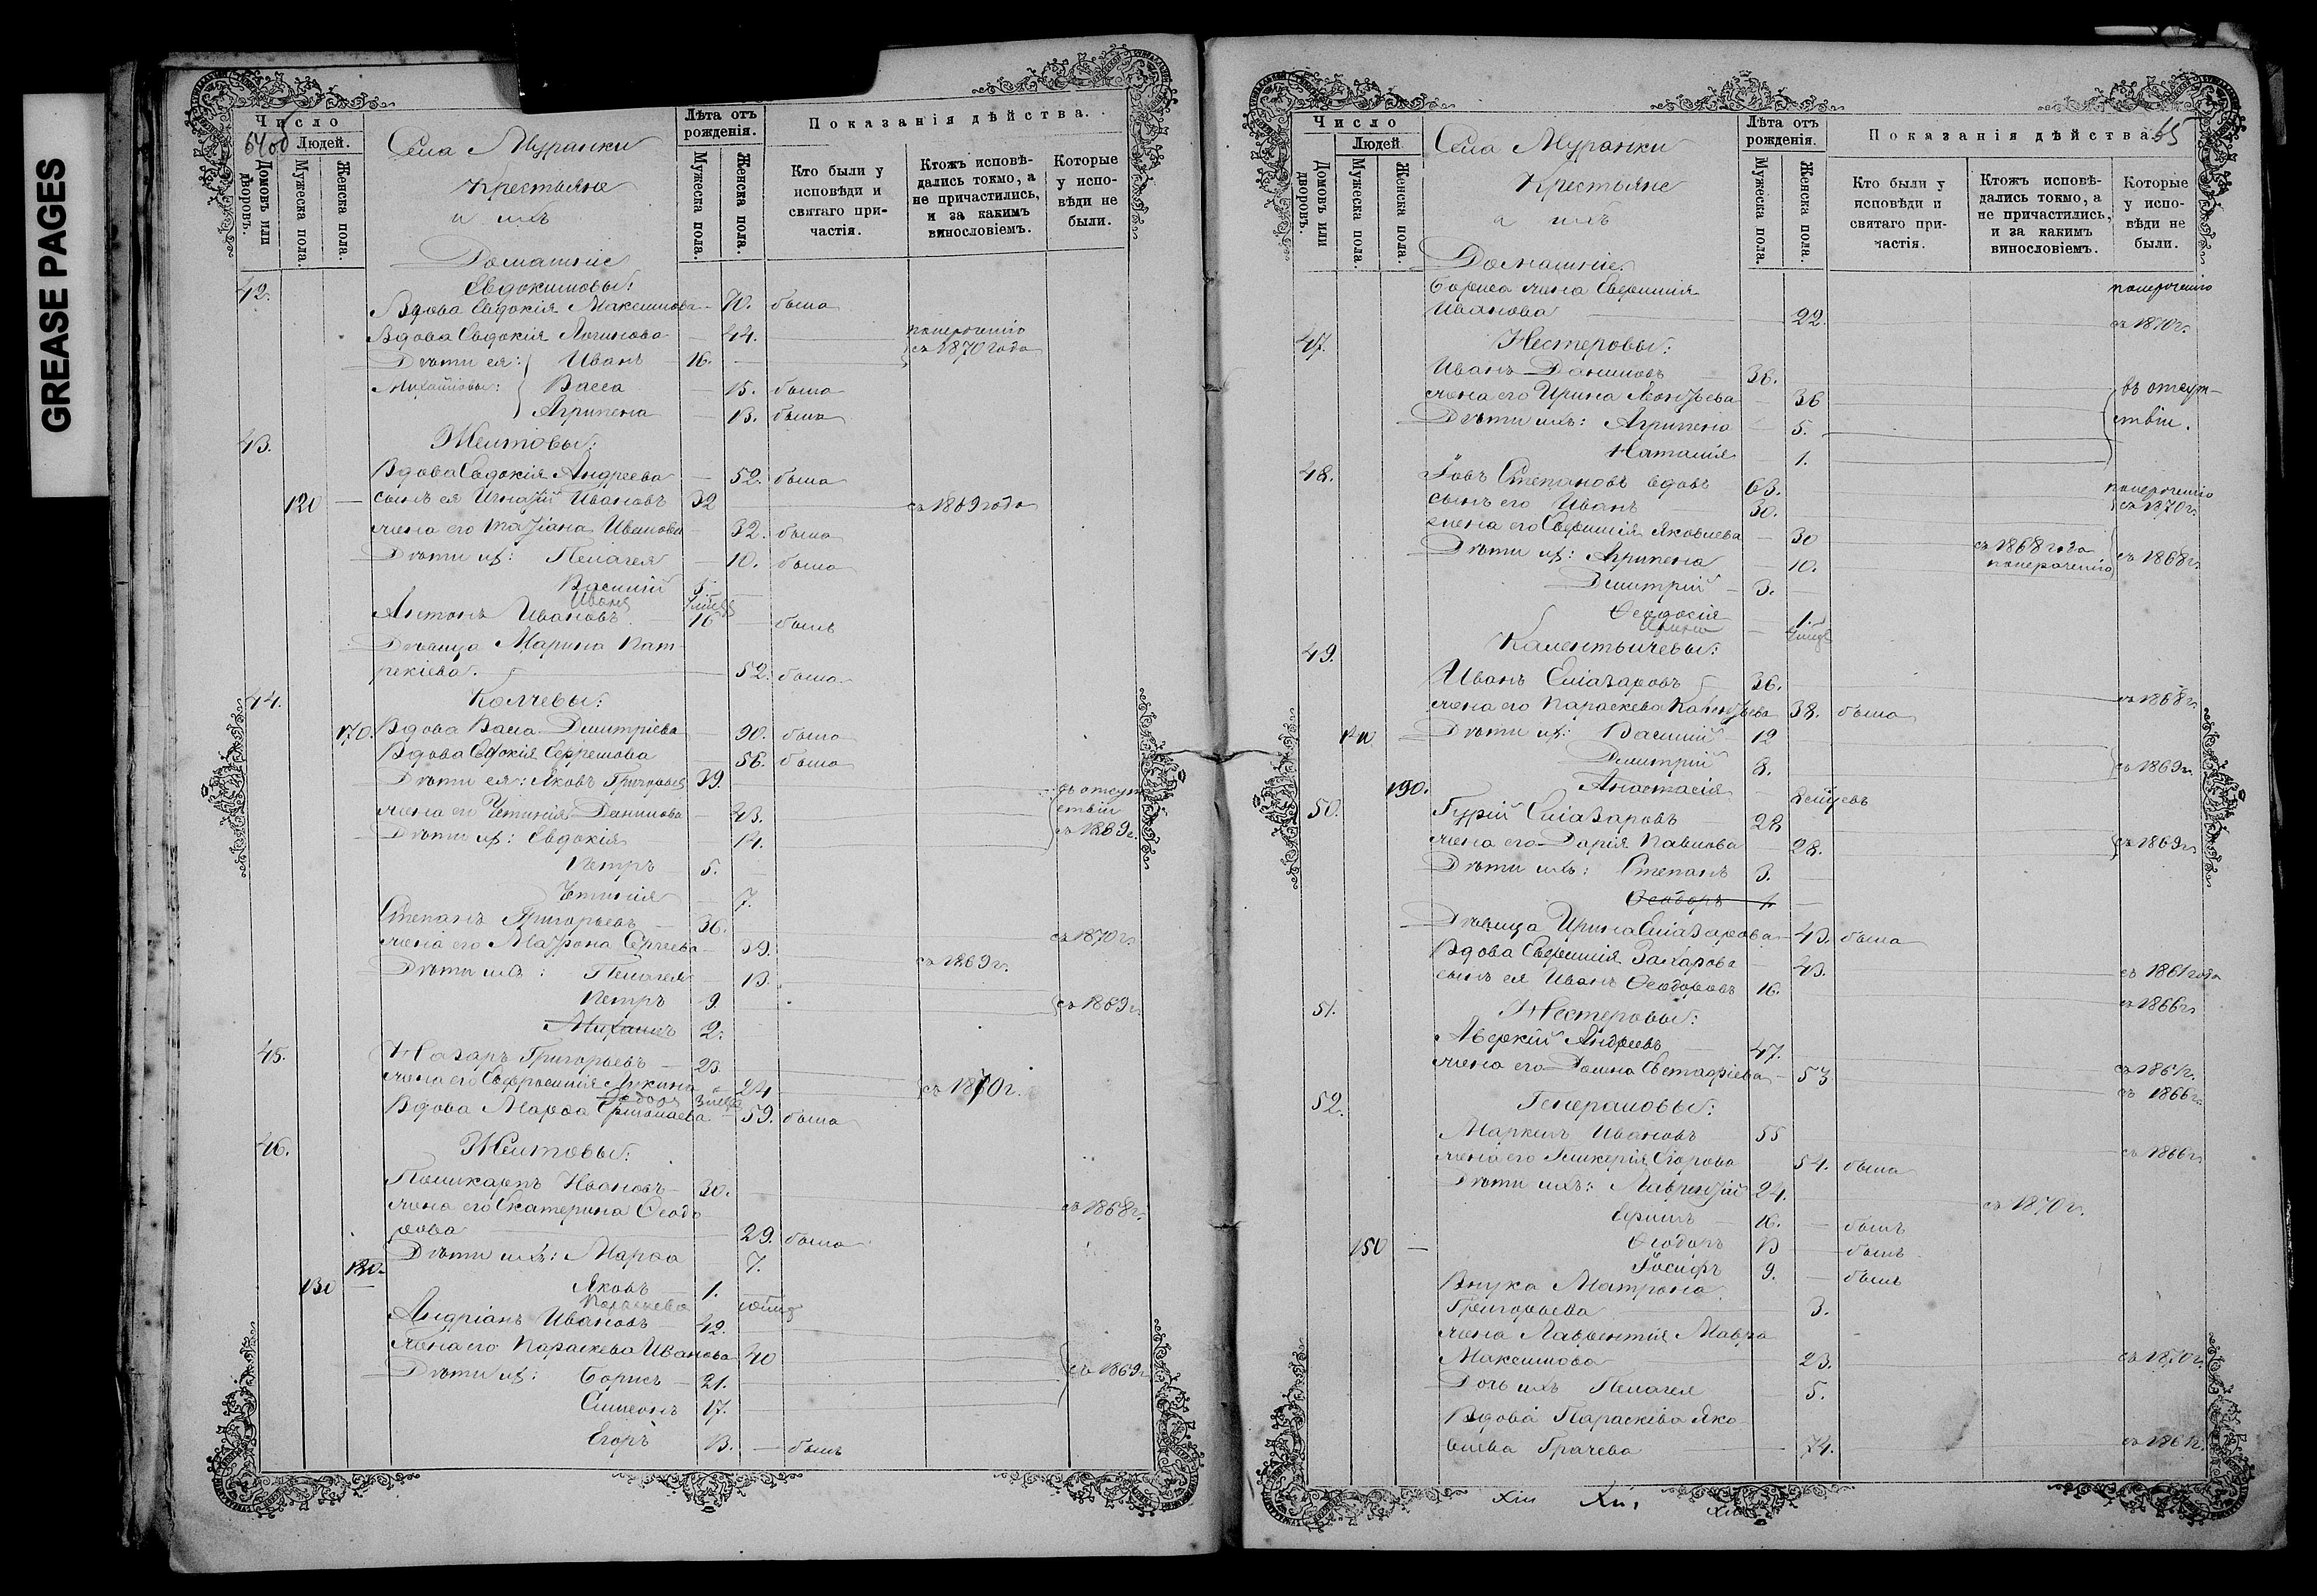 GREASE PAGES
Число
64об
Людей.
Домовъ или дворовъ.
Мужеска пола.
Женска пола.
Села Муранки
Крестьяне
и ихъ
Домашніе
Лѣта отъ рожденія.
Мужеска пола.
Женска пола.
Показанія дѣйства.
Кто были у исповѣди и святаго причастія.
Ктожъ исповѣдались токмо, а не причастились, и за какимъ винословіемъ.
Которые у исповѣди не были.
42. Евдокимовы:
Вдова Евдокія Максимова 70. была
Вдова Евдокія Логинова 44. понераченію
Дѣти ея: Иванъ 16. съ 1870 года
Михайловы: Васса 15. была
Агрипена 13. была
43. Желтовы:
Вдова Евдокія Андреева 52. была
120 сынъ ея Игнатій Ивановъ 32 съ 1869 года
жена его Татіана Иванова 32. была
Дѣти их: Пелагея 10. была
Василий 5.
Антонъ Ивановъ 16 былъ
Дѣвица Марина Пат
рекіева. 52. была
44. Колчевы:
170. Вдова Васса Дмитріева 90. была
Вдова Евдокія Сефремова 56. была
Дѣти ея: Яковъ Григорьев 39.
въ отсут
жена его Устинія Данилова 43. ствіи
Дѣти их: Евдокія 14. съ 1869г.
Петръ 5.
Устинія 7.
Степанъ Григорьевъ 36. съ 1870г.
жена его Матрона Сергеева 39. съ 1869г.
Дѣти ихъ: Пелагея 13.
Петръ 9 съ 1869г.
Михаилъ 2.
45. Назаръ Григорьевъ 23.
жена его Евфросинія Лукина 24 съ 1870г.
Вдова Марѳа 59. была
46. Желтовы:
Поликарпъ Ивановъ 30. съ 1868г.
жена его Екатерина Ѳеодо
рова 29. была
Дѣти ихъ: Марѳа 7.
130 180. Яковъ 1.
Параскева
Андріанъ Ивановъ 42.
жена его Параскева Иванова 40
Дѣти их: Борисъ 21. съ 1869г.
Симеонъ 17.
Егоръ 13. былъ
Число
Людей
Домовъ или дворовъ.
Мужеска пола.
Женска пола.
Села Муранки
Крестьяне
и ихъ
Домашніе.
Лѣта отъ рожденія.
Мужеска пола.
Женска пола.
Показанія дѣйства.
65
Кто были у исповѣди и святаго причастія.
Ктожъ исповѣдались токмо, а не причастились, и за какимъ винословіемъ.
Которые у исповѣди не были.
Бориса жена Евфимія понераченію
Иванова 22. съ 1870г.
47. Нестеровы:
Иванъ Даниловъ 38.
въ отсут-
жена его Ирина Леонтьева 36
Дѣти ихъ: Агрипена 5. ствіи.
Наталія 1.
48. Іовъ Степановъ вдовъ 63. понераченію
сынъ его Иванъ 30. съ 1870г.
жена его Евфимія Яковлева 30 съ 1868 года
Дѣти их: Агрипена 10. понераченію съ 1868г.
Димитрій 3.
Ѳеодосія 1.
49. Калентьичевы:
Иванъ Елиазаровъ 36. съ 1868г.
жена его Параскева 38. была
140 Дѣти их: Василий 12
Димитрій 8. съ 1869г.
190. Анастасія
50. Гурій Елиазаровъ 28
жена его Дарія Павлова 28. съ 1869г.
Дѣти ихъ: Степанъ 3.
Ѳеодоръ 1.
Дѣвица Ирина Елиазарова 43. была
Вдова Евфимія Захарова 43. съ 1861 года
сынъ ея Иванъ Ѳеодоровъ 16. съ 1866г.
51. Нестеровы:
Аверкій Андреевъ 47.
жена его Домна Евстафіева 53
съ 1866г.
52. Генераловы:
Маркелъ Ивановъ 55 съ 1866г.
жена его Гликерія Егорова 54. была
Дѣти ихъ: Лаврентій 24. съ 1870г.
Ефимъ 16. былъ
150 Ѳеодоръ 13 былъ
Іосифъ 9. былъ
Внука Матрона
Григорьева 3.
жена Лаврентія Мавра
Максимова 23. съ 1870г.
Дочь ихъ Пелагея 5.
Вдова Параскева Яко
влева Грачева 74.